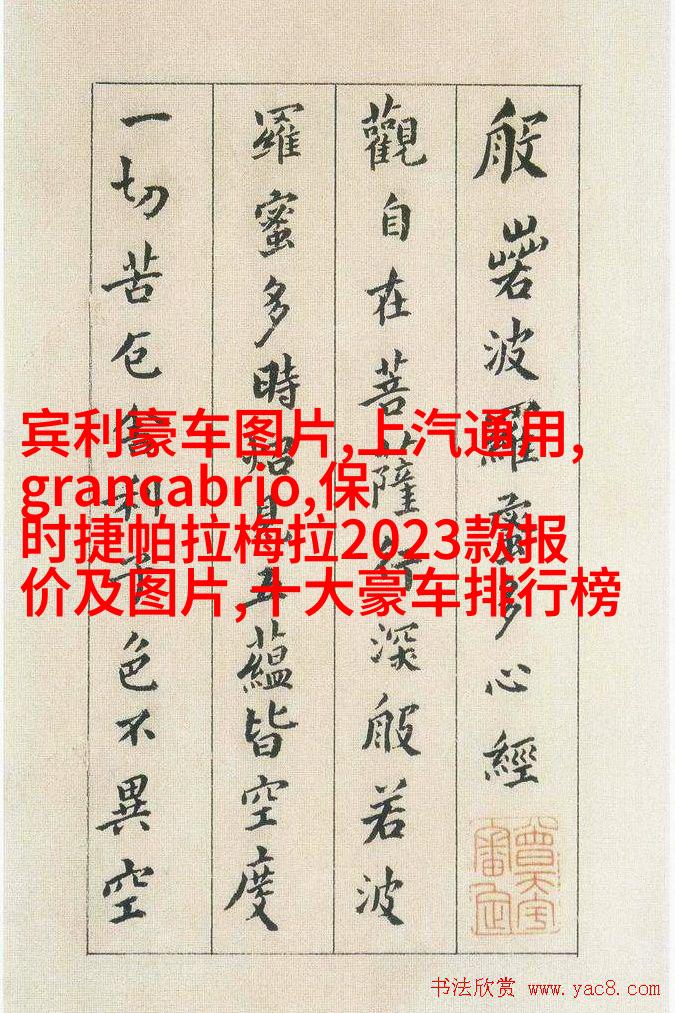 般若波羅蜜多心經
觀自在菩薩行深般若波
羅蜜多時照見五蘊皆空度
一切苦厄舍利子色不異空
宾利豪车图片,上汽通用,
grancabrio,保
时捷帕拉梅拉2023款报
价及图片,十大豪车排行榜
书法欣赏 www.yac8.com